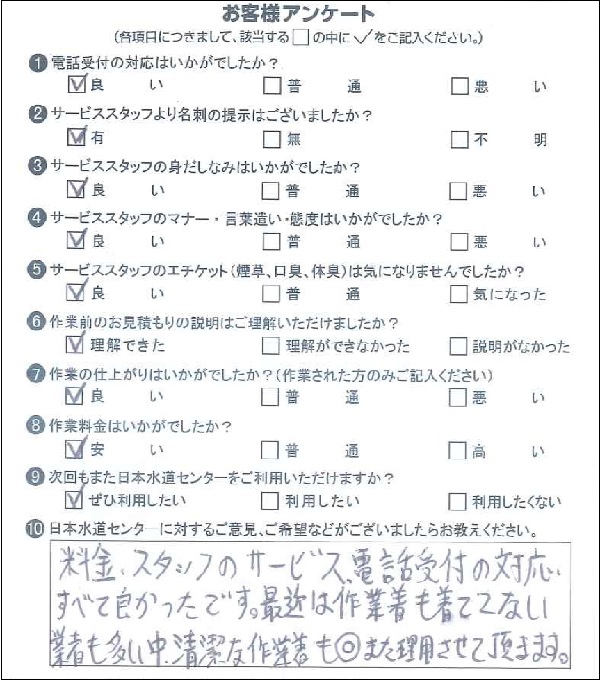 お客様アンケート
(各項目につきまして、該当する□の中に✓をご記入ください。)
❶電話受付の対応はいかがでしたか?
☑良い □普通 □悪い
❷サービススタッフより名刺の提示はございましたか?
☑有 □無 □不明
❸サービススタッフの身だしなみはいかがでしたか?
☑良い □普通 □悪い
❹サービススタッフのマナー・言葉遣い・態度はいかがでしたか?
☑良い □普通 □悪い
❺サービススタッフのエチケット(煙草、口臭、体臭)は気になりませんでしたか?
☑良い □普通 □気になった
❻作業前のお見積もりの説明はご理解いただけましたか?
☑理解できた □理解ができなかった □説明がなかった
❼作業の仕上がりはいかがでしたか?(作業された方のみご記入ください)
☑良い □普通 □悪い
❽作業料金はいかがでしたか?
☑安い □普通 □高い
❾次回もまた日本水道センターをご利用いただけますか?
☑ぜひ利用したい □利用したい □利用したくない
❿日本水道センターに対するご意見、ご希望などがございましたらお教えください。
料金、スタッフのサービス、電話受付の対応、
すべて良かったです。最近は作業着も着てこない
業者も多い中、清潔な作業着も◎また理用させて頂きます。